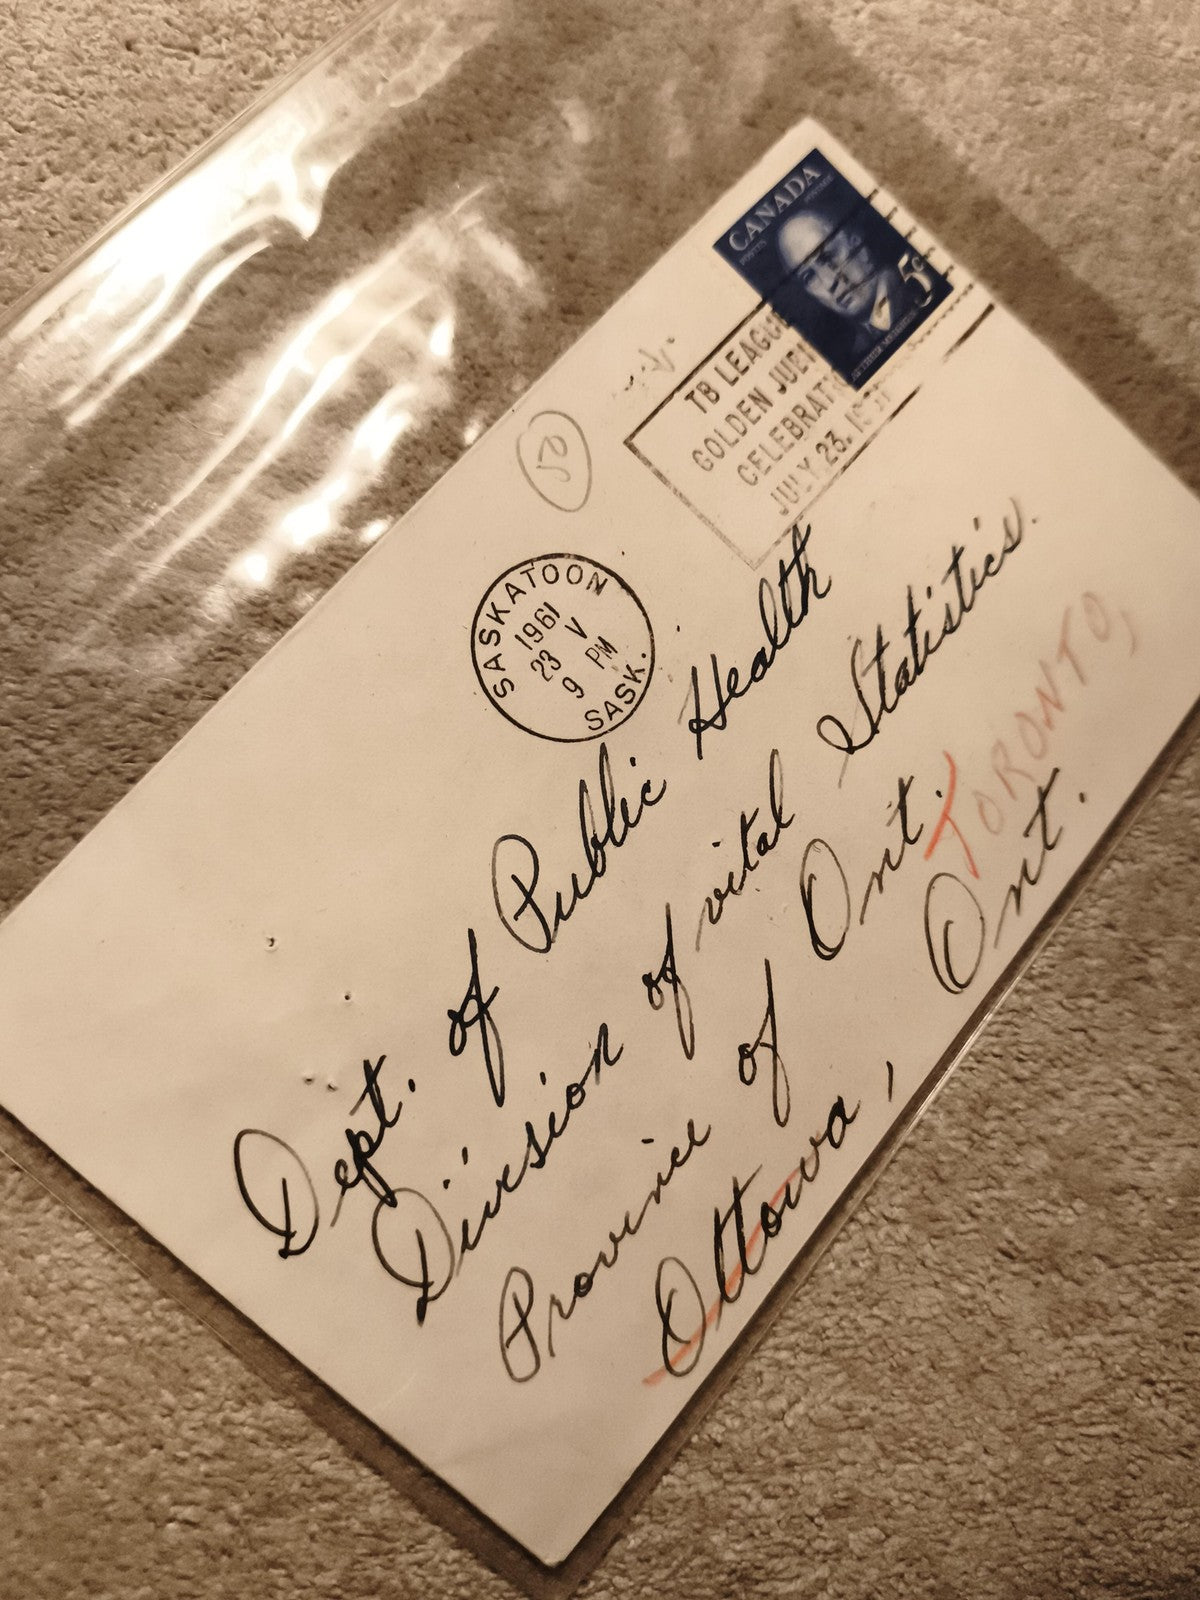 CANADA
POSTES POSTAGE
5¢
ARTHUR MEIGHEN
TB LEAGUE
GOLDEN JUBI
CELEBRATI
JULY 23, 1961
25
SASKATOON
1961
23 V
9 PM
SASK.
Dept. of Public Health
Divsion of vital Statistics.
Province of Ont.
TORONTO,
Ottowa, Ont.